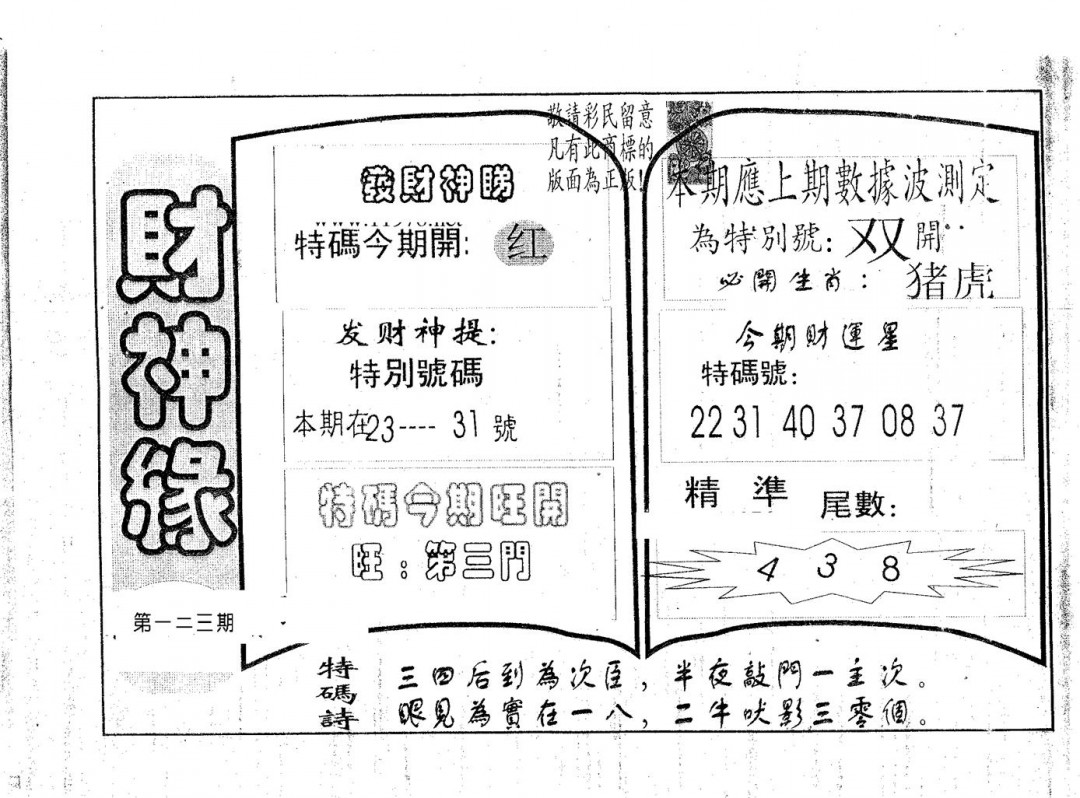 財神緣
第一二三期
敬請彩民留意
凡有此商標的
版面為正版!
發財神睇
特碼今期開: 红
发财神提:
特別號碼
本期在23---- 31 號
特碼今期旺開
旺:第三門
本期應上期數據波測定
為特別號: 双 開
必開生肖: 猪虎
今期財運星
特碼號:
22 31 40 37 08 37
精 準 尾數:
4 3 8
特碼詩
三四后到為次臣,半夜敲門一主次。
眼見為實在一八,二牛吠影三零個。